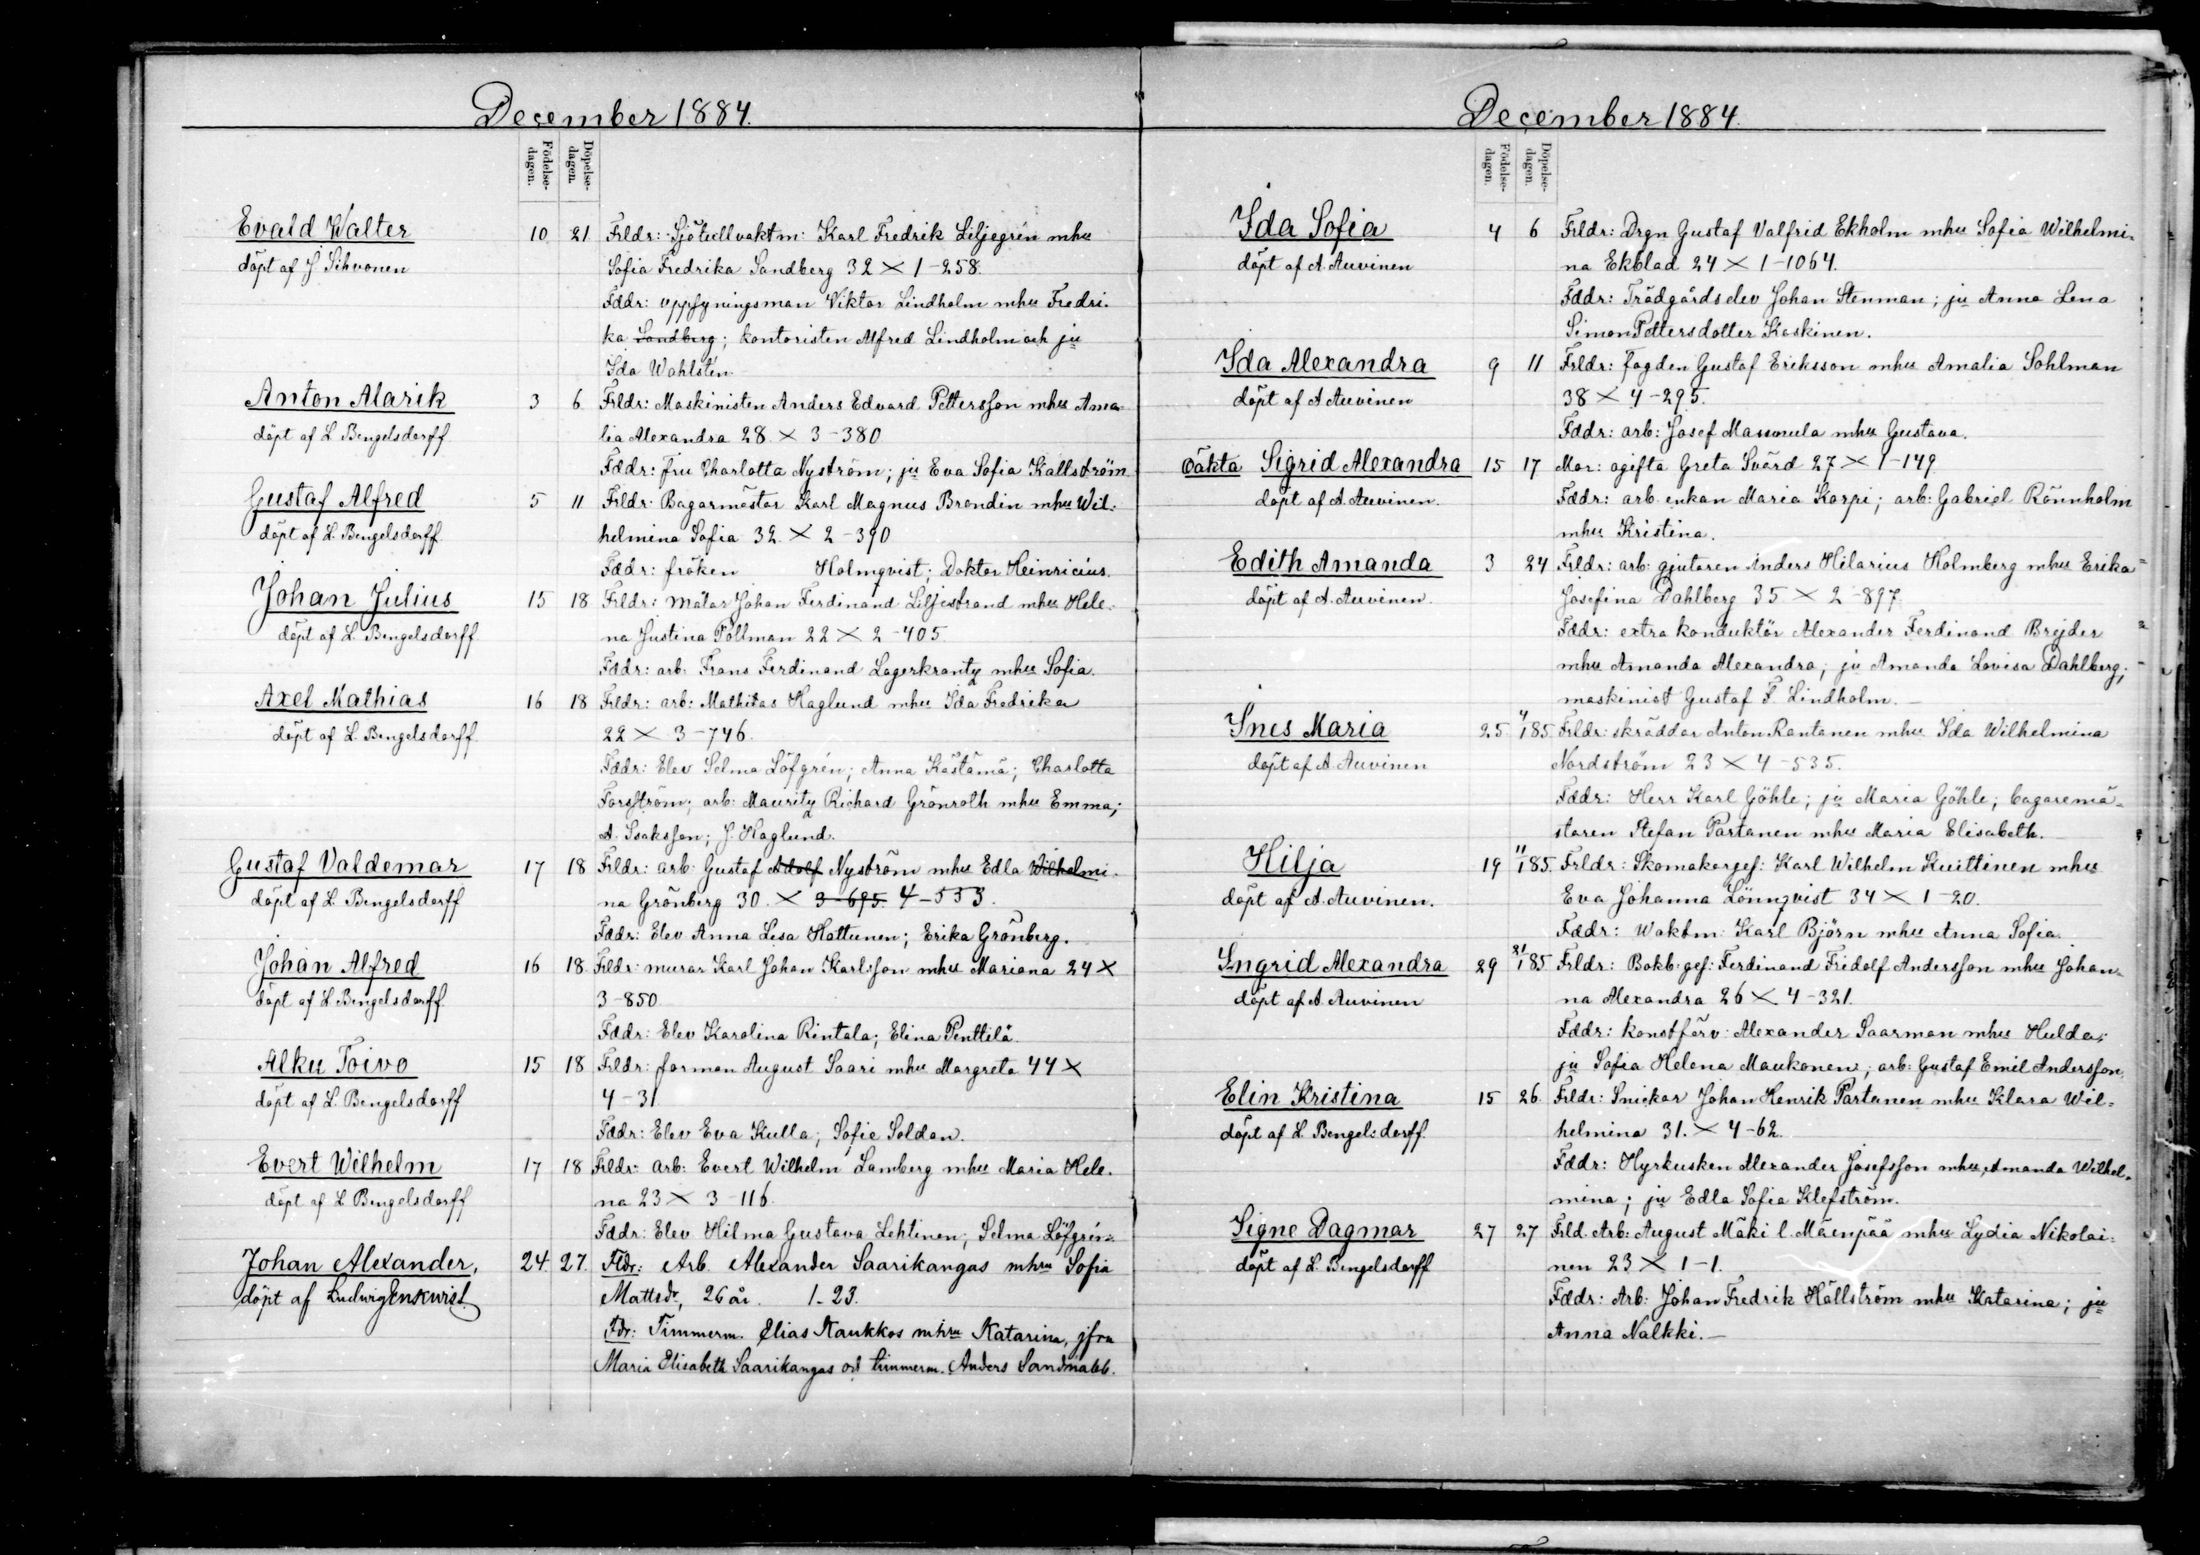 December 1884.
Födelse-dagen.
Döpelse-dagen.
Evald Walter 10 21 Frldr: Sjötullvaktm: Karl Fredrik Liljegrén mhu
döpt af J Sihvonen Sofia Fredrika Sandberg 32 × 1-258.
Fddr: uppsyningsman Viktor Lindholm mhu Fredri-
ka Sandberg; kontoristen Alfred Lindholm och ju
Ida Wahlstén
Anton Alarik 3 6 Frldr: Maskinisten Anders Edvard Pettersson mhu Ama-
döpt af L. Bengelsdorff lia Alexandra 28 × 3-380
Fddr: fru Charlotta Nyström; ju Eva Sofia Kallström
Gustaf Alfred 5 11 Frldr: Bagarmästar Karl Magnus Brondin mhu Wil-
döpt af L. Bengelsdorff helmina Sofia 32. × 2-390
Fddr: fröken Holmqvist; Doktor Heinricius.
Johan Julius 15 18 Frldr: målar Johan Ferdinand Liljestrand mhu Hele-
döpt af L. Bengelsdorff na Justina Pollman 22 × 2-405
Fddr: arb: Frans Ferdinand Lagerkrantz mhu Sofia.
Axel Mathias 16 18 Frldr: arb: Mathias Haglund mhu Ida Fredrika
döpt af L. Bengelsdorff 22 × 3-746.
Fddr: Elev Selma Löfgrén; Anna Kästämä; Charlotta
Forsström; arb: Mauritz Richard Grönroth mhu Emma;
A. Isaksson; J. Haglund.
Gustaf Valdemar 17 18 Frldr: arb: Gustaf Adolf Nyström mhu Edla Wilhelmi-
döpt af L. Bengelsdorff na Grönberg 30. × 3-695. 4-553.
Fddr: Elev Anna Lisa Hattunen; Erika Grönberg.
Johan Alfred 16 18 Frldr: murar Karl Johan Karlsson mhu Mariana 24 ×
döpt af L Bengelsdorff 3-850
Fddr: Elev Karolina Rintala; Elina Penttilä.
Alku Toivo 15 18 Frldr: forman August Saari mhu Margreta 44 ×
döpt af L. Bengelsdorff 4-31.
Fddr: Elev Eva Kulla; Sofie Soldan.
Evert Wilhelm 17 18 Frldr: arb: Evert Wilhelm Lamberg mhu Maria Hele-
döpt af L Bengelsdorff na 23 × 3-116.
Fddr: Elev Hilma Gustava Lehtinen; Selma Löfgrén.
Johan Alexander, 24. 27. Fldr: Arb. Alexander Saarikangas mhru Sofia
döpt af Ludvig Enskvist. Mattsdr, 26 år. 1-23.
Fdr: Timmerm. Elias Kaukkos mhru Katarina, jfru
Maria Elisabeth Saarikangas och timmerm. Anders Sandnabb.
December 1884.
Födelse-dagen.
Döpelse-dagen.
Ida Sofia 4 6 Frldr: Drgn Gustaf Valfrid Ekholm mhu Sofia Wilhelmi-
döpt af A. Auvinen na Ekblad 24 × 1-1064.
Fddr: Trädgårdselev Johan Stenman; ju Anna Lena
Simon Pettersdotter Kaskinen.
Ida Alexandra 9 11 Frldr: fogden Gustaf Eriksson mhu Amalia Sohlman
döpt af A Auvinen 38 × 4-295.
Fddr: arb: Josef Massmula mhu Gustava.
Oäkta Sigrid Alexandra 15 17 Mor: ogifta Greta Svärd 27 × 1-149
döpt af A. Auvinen. Fddr: arb. enkan Maria Korpi; arb: Gabriel Rönnholm
mhu Kristina.
Edith Amanda 3 24 Frldr: arb: gjutaren Anders Hilarius Holmberg mhu Erika
döpt af A. Auvinen. Josefina Dahlberg 35 × 2-897.
Fddr: extra konduktör Alexander Ferdinand Brejder
mhu Amanda Alexandra; ju Amanda Lovisa Dahlberg;
maskinist Gustaf F. Lindholm.
Ines Maria 25 4/1 85 Frldr: skräddar Anton Rantanen mhu Ida Wilhelmina
döpt af A. Auvinen Nordström 23 × 4-535.
Fddr: Herr Karl Göhle; ju Maria Göhle; bagaremä-
staren Stefan Partanen mhu Maria Elisabeth.
Hilja 19 11/1 85. Frldr: Skomakargef: Karl Wilhelm Kuittinen mhu
döpt af A. Auvinen. Eva Johanna Lönnqvist 34 × 1-20.
Fddr: Waktm: Karl Björn mhu Anna Sofia.
Ingrid Alexandra 29 21/1 85 Frldr: Bokb: gef: Ferdinand Fridolf Andersson mhu Johan-
döpt af A. Auvinen na Alexandra 26 × 4-321.
Fddr: konstförv: Alexander Saarman mhu Hulda;
ju Sofia Helena Maukonen; arb: Gustaf Emil Andersson.
Elin Kristina 15 26. Frldr: Snickar Johan Henrik Partanen mhu Klara Wil-
döpt af L. Bengelsdorff. helmina 31. × 4-62.
Fddr: Hyrkusken Alexander Josefsson mhu Amanda Wilhel-
mina; ju Edla Sofia Klefström.
Signe Dagmar 27 27 Frld. Arb: August Mäki l. Mäenpää mhu Lydia Nikolai-
döpt af L. Bengelsdorff nen 23 × 1-1.
Fddr: Arb: Johan Fredrik Hällström mhu Katarina; ju
Anna Nalkki.